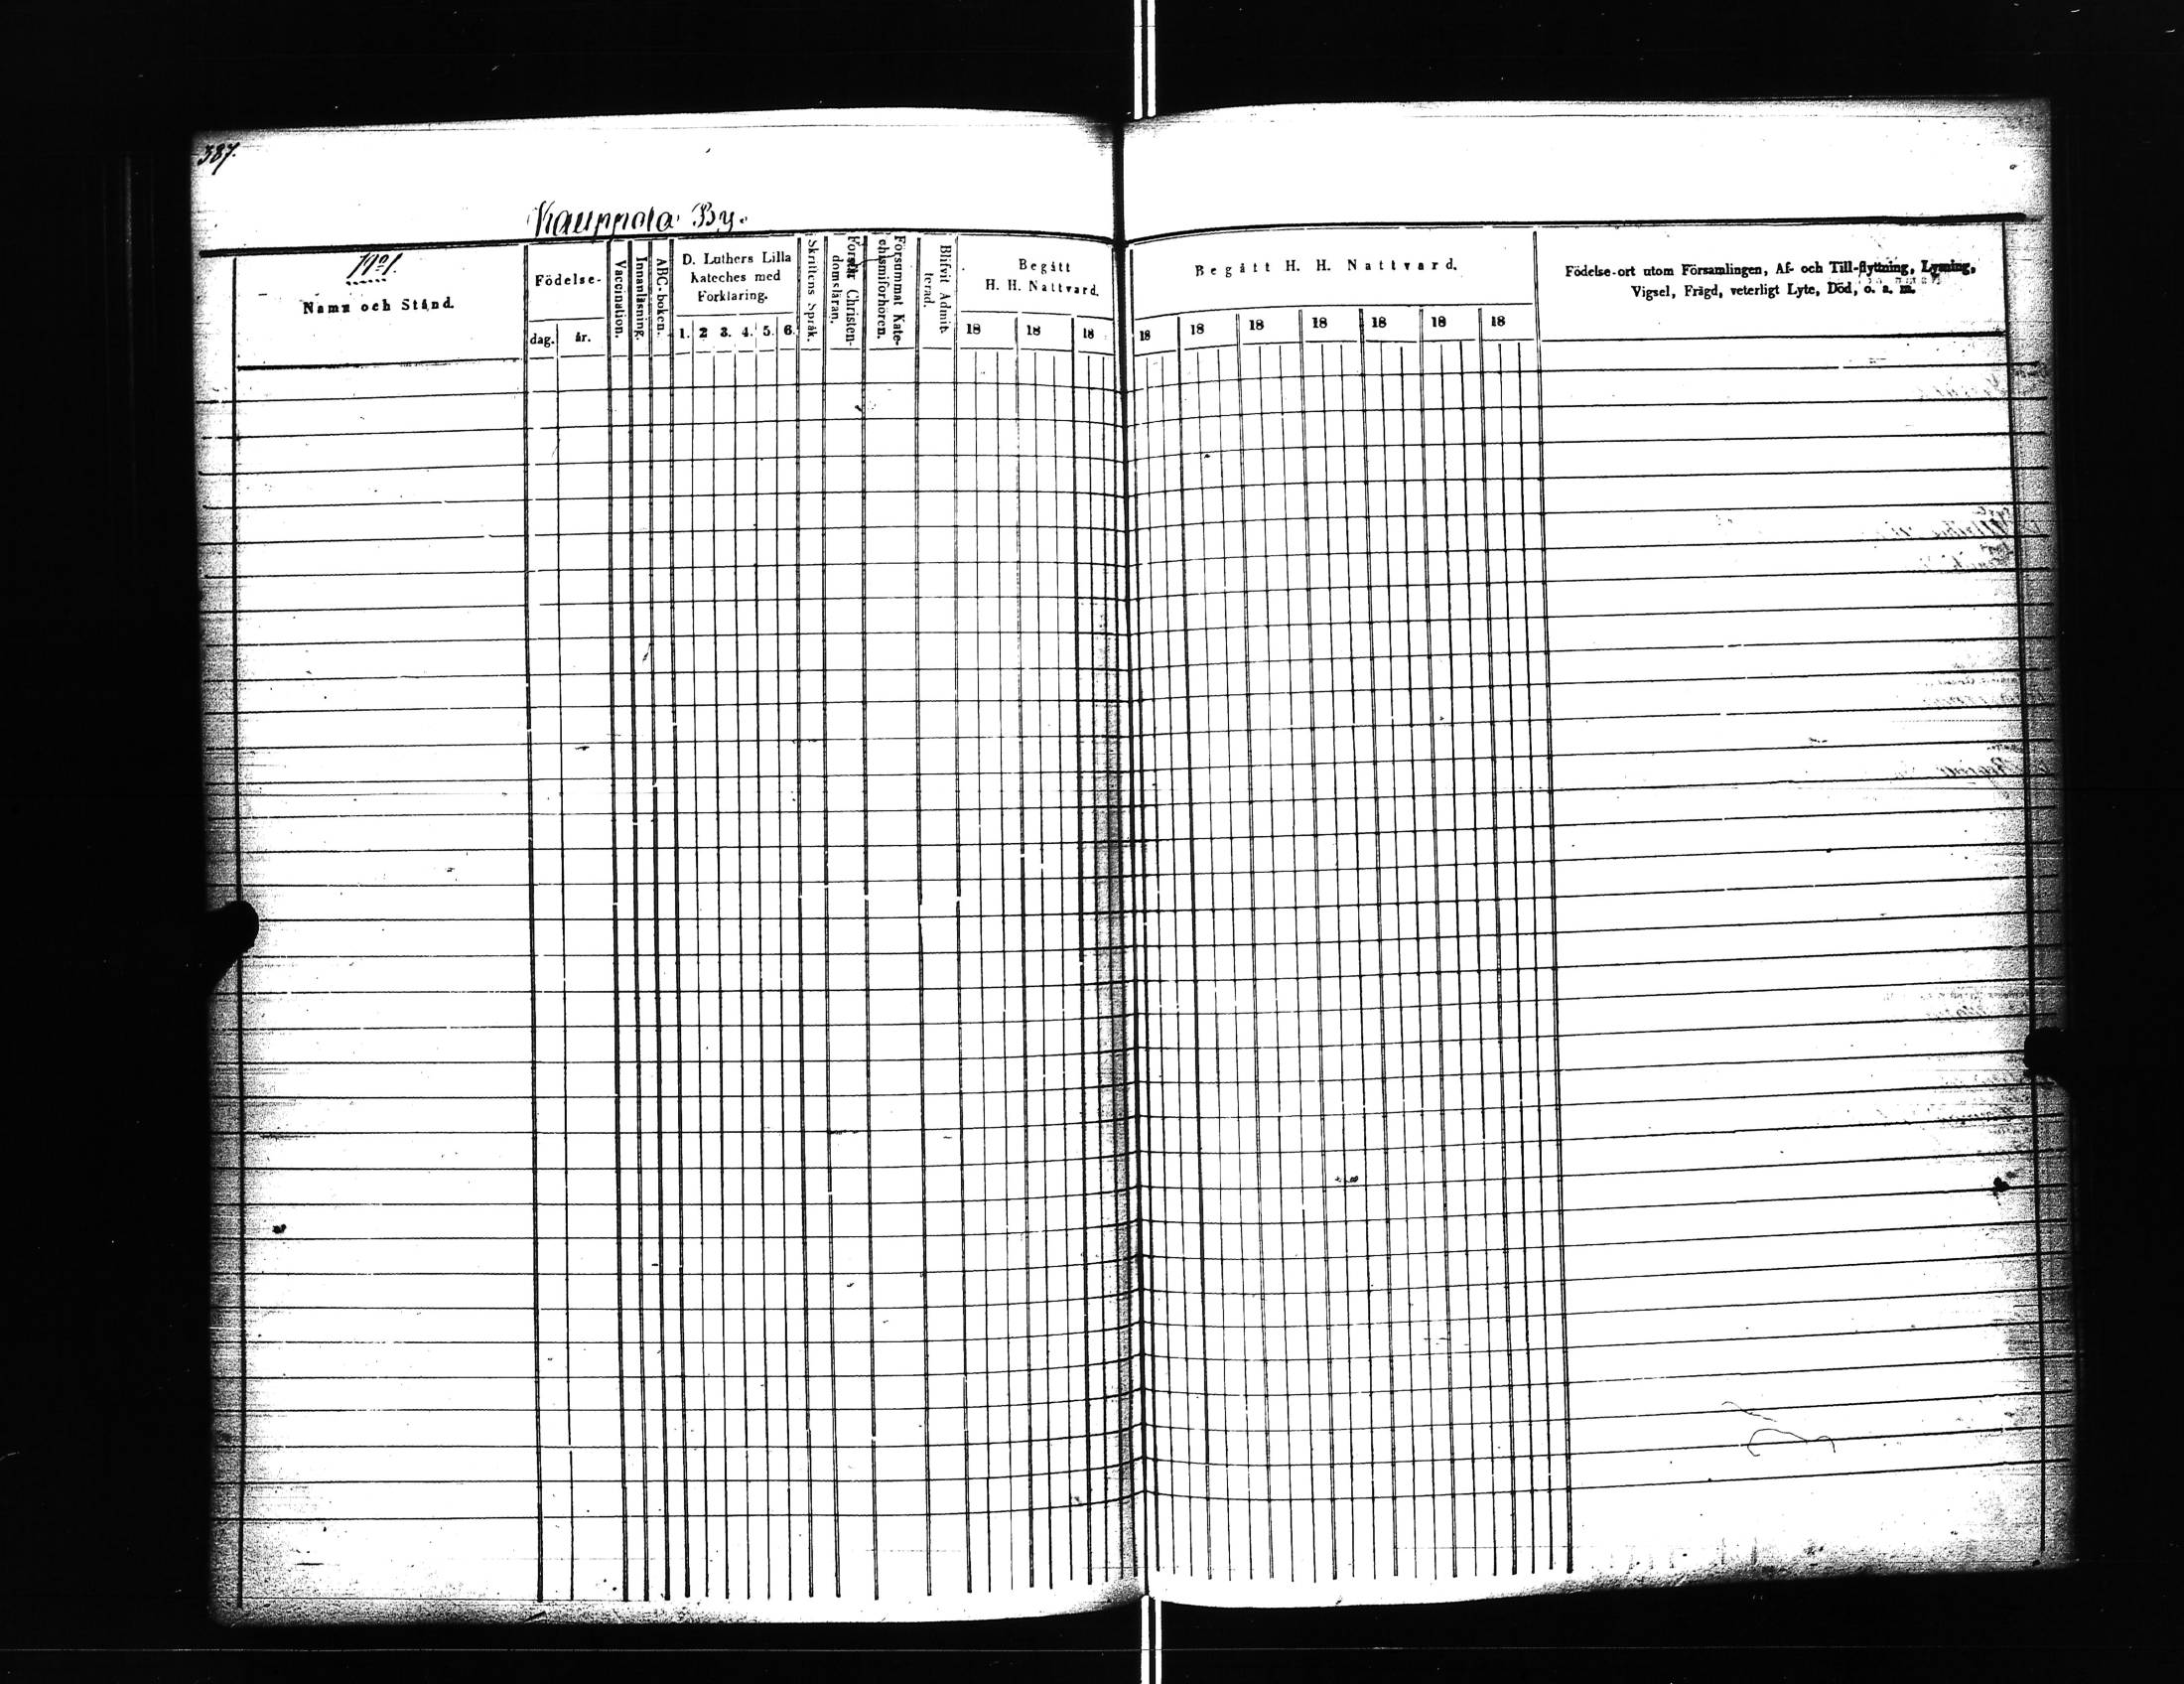 387.
Kauppola By.
No 1.
Namn och Stånd.
Födelse-
dag. år.
Vaccination.
Innanläsning.
ABC-boken.
D. Luthers Lilla
Kateches med
Förklaring.
1. 2 3. 4. 5. 6.
Skriftens Språk.
Förstår Christen-
domsläran.
Försummat Kate-
chismiförhören.
Blifvit Admit-
terad.
Begått
H. H. Nattvard.
18 18 18
Begått H. H. Nattvard.
18 18 18 18 18 18 18
Födelse-ort utom Församlingen, Af- och Till-flyttning, Lysning,
Vigsel, Frägd, veterligt Lyte, Död, o. s. m.